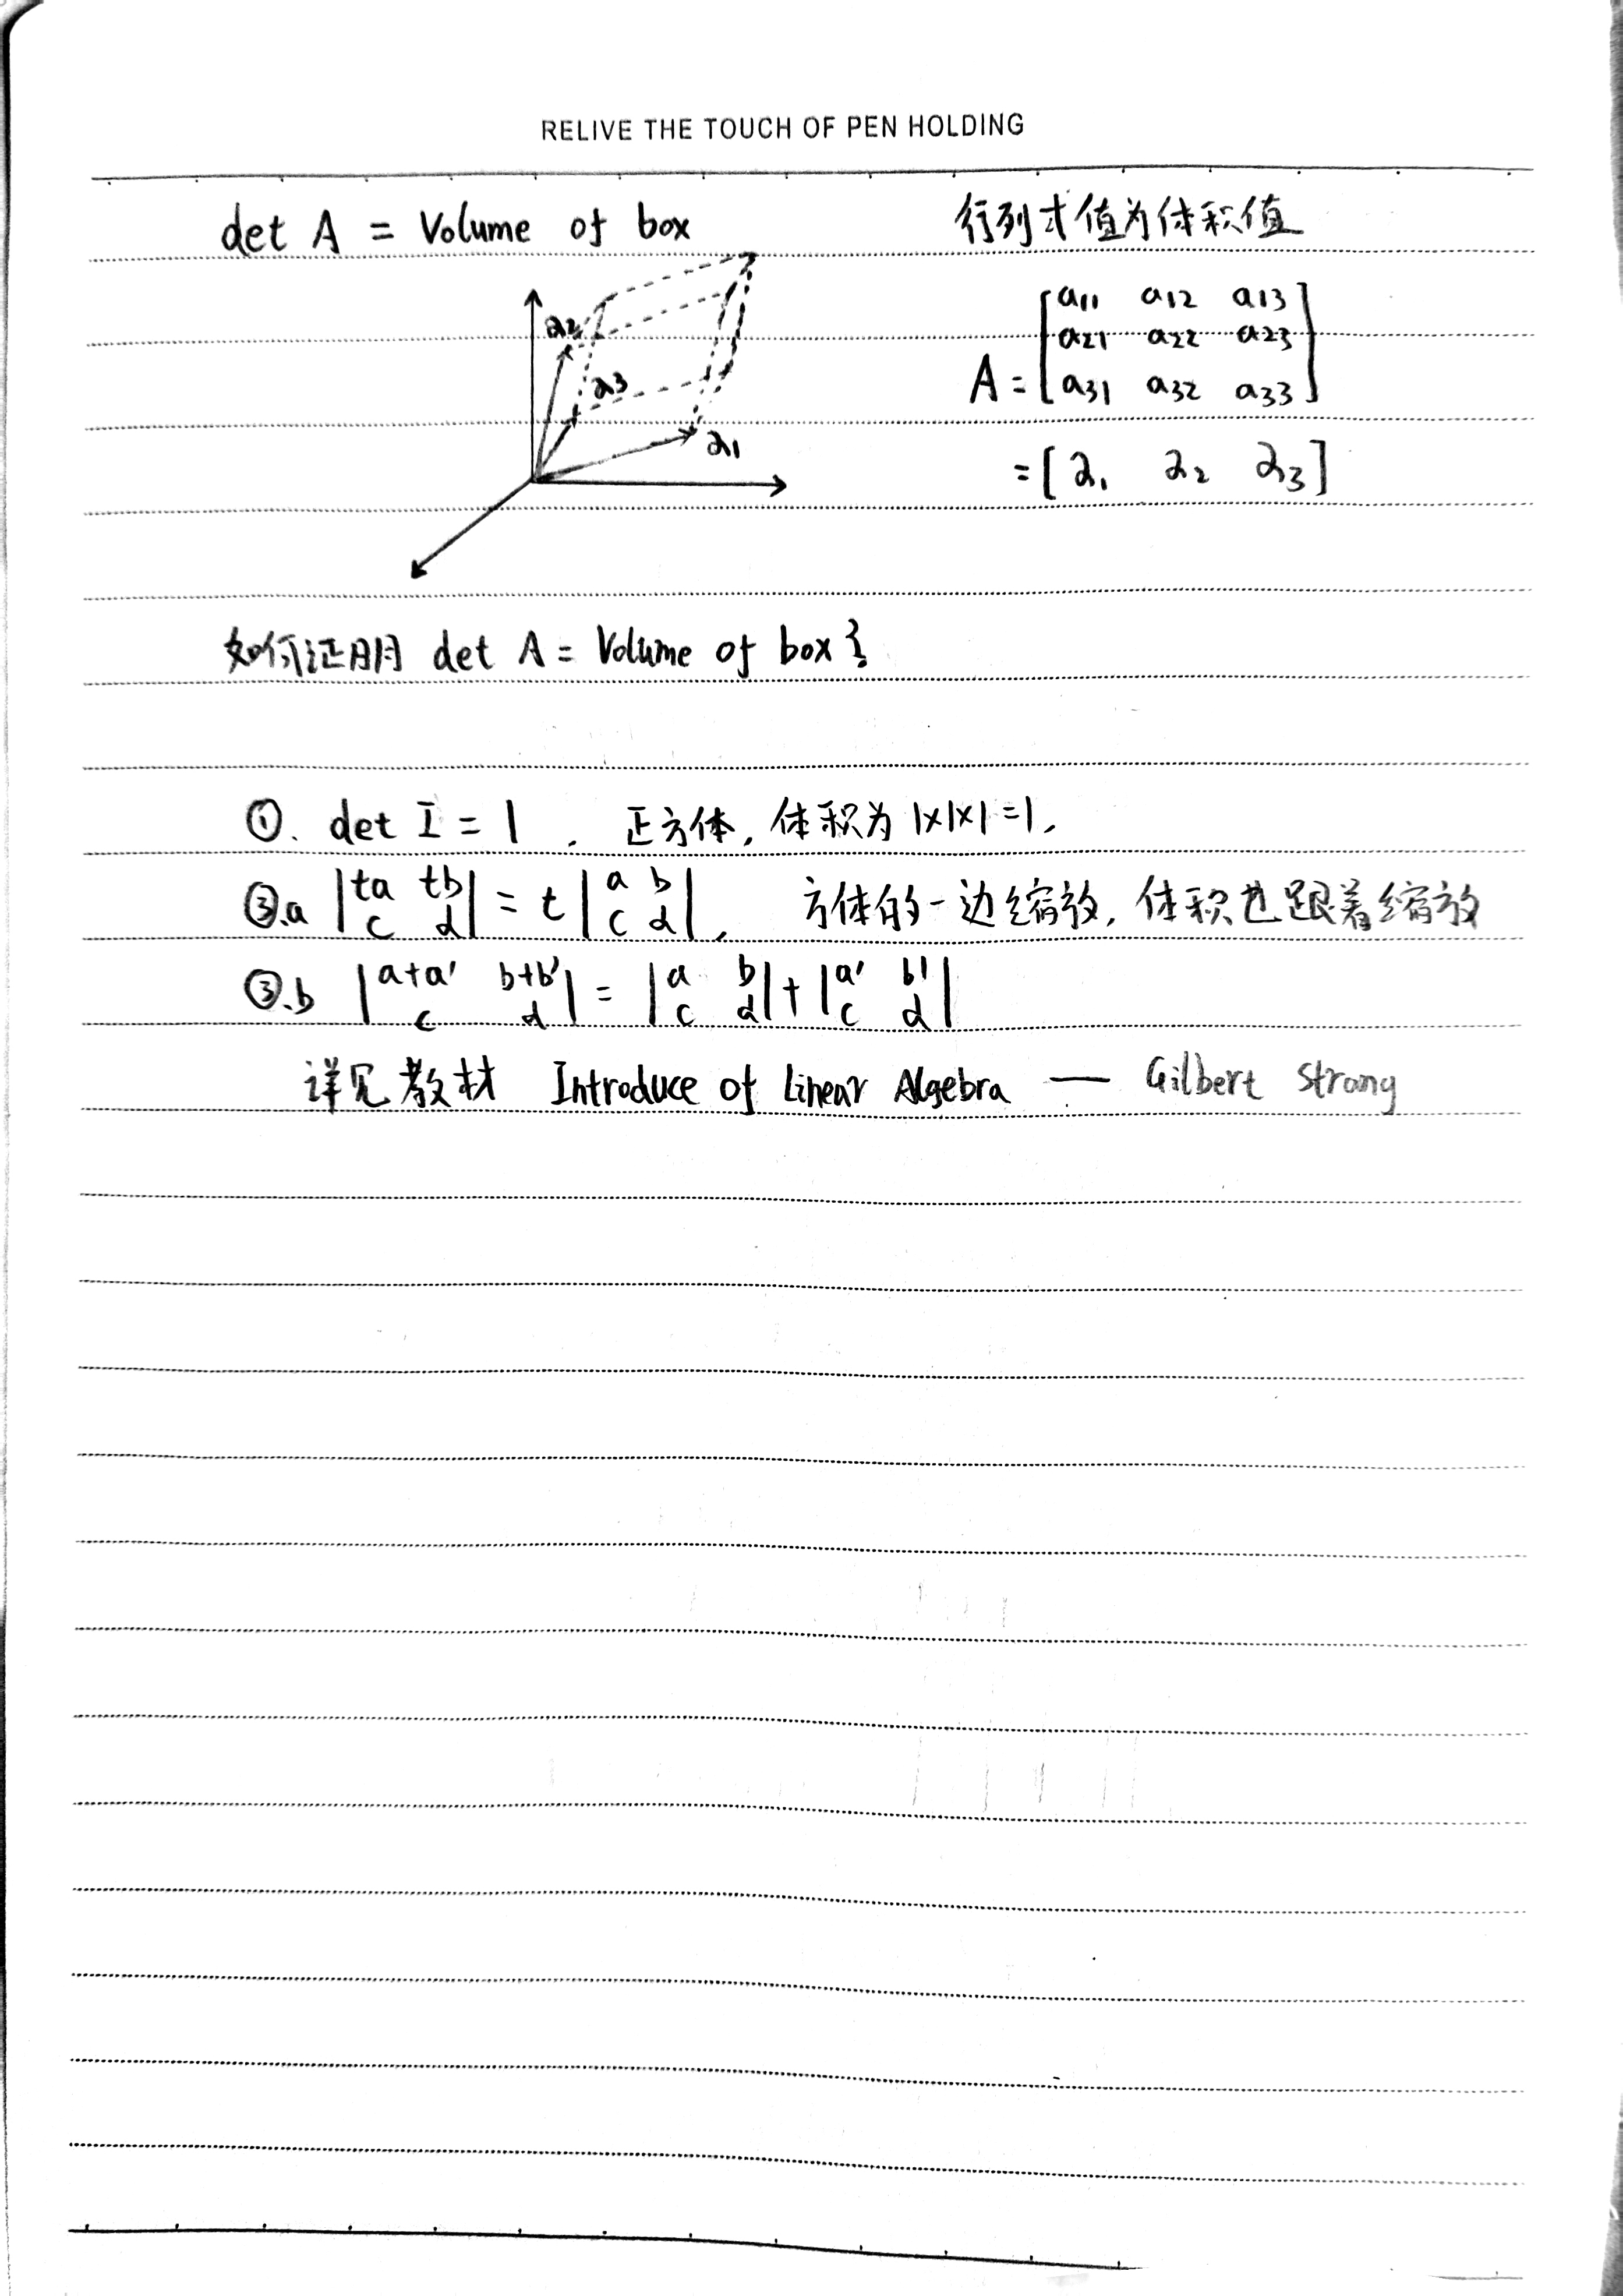 RELIVE THE TOUCH OF PEN HOLDING
det A = Volume of box 行列式值为体积值
a2
a3
a1
A = [a11 a12 a13
a21 a22 a23
a31 a32 a33]
= [a1 a2 a3]
如何证明 det A = Volume of box ?
①. det I = 1 . 正方体, 体积为 1×1×1=1.
③.a |ta tb
c d| = t |a b
c d|, 方体的一边缩放, 体积也跟着缩放
③.b |a+a' b+b'
c d| = |a b
c d| + |a' b'
c d|
详见教材 Introduce of Linear Algebra — Gilbert Strong